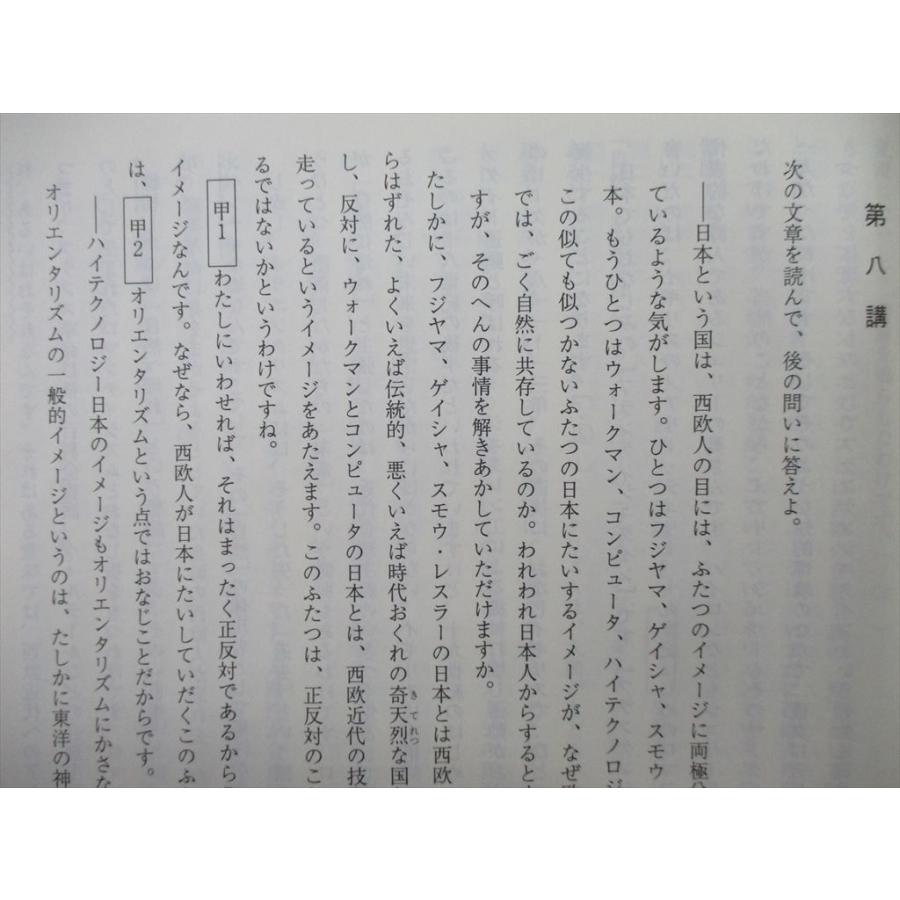 第八講
次の文章を読んで、後の問いに答えよ。
――日本という国は、西欧人の目には、ふたつのイメージに両極
ているような気がします。ひとつはフジヤマ、ゲイシャ、スモウ
本。もうひとつはウォークマン、コンピュータ、ハイテクノロジ
この似ても似つかないふたつの日本にたいするイメージが、なぜ
では、ごく自然に共存しているのか。われわれ日本人からすると
すが、そのへんの事情を解きあかしていただけますか。
たしかに、フジヤマ、ゲイシャ、スモウ・レスラーの日本とは西欧
らはずれた、よくいえば伝統的、悪くいえば時代おくれの奇天烈な国
きてれつ
し、反対に、ウォークマンとコンピュータの日本とは、西欧近代の技
走っているというイメージをあたえます。このふたつは、正反対のこ
るではないかというわけですね。
甲1 わたしにいわせれば、それはまったく正反対であるから
イメージなんです。なぜなら、西欧人が日本にたいしていだくこのふ
は、甲2 オリエンタリズムという点ではおなじことだからです。
――ハイテクノロジー日本のイメージもオリエンタリズムにかさな
オリエンタリズムの一般的イメージというのは、たしかに東洋の神